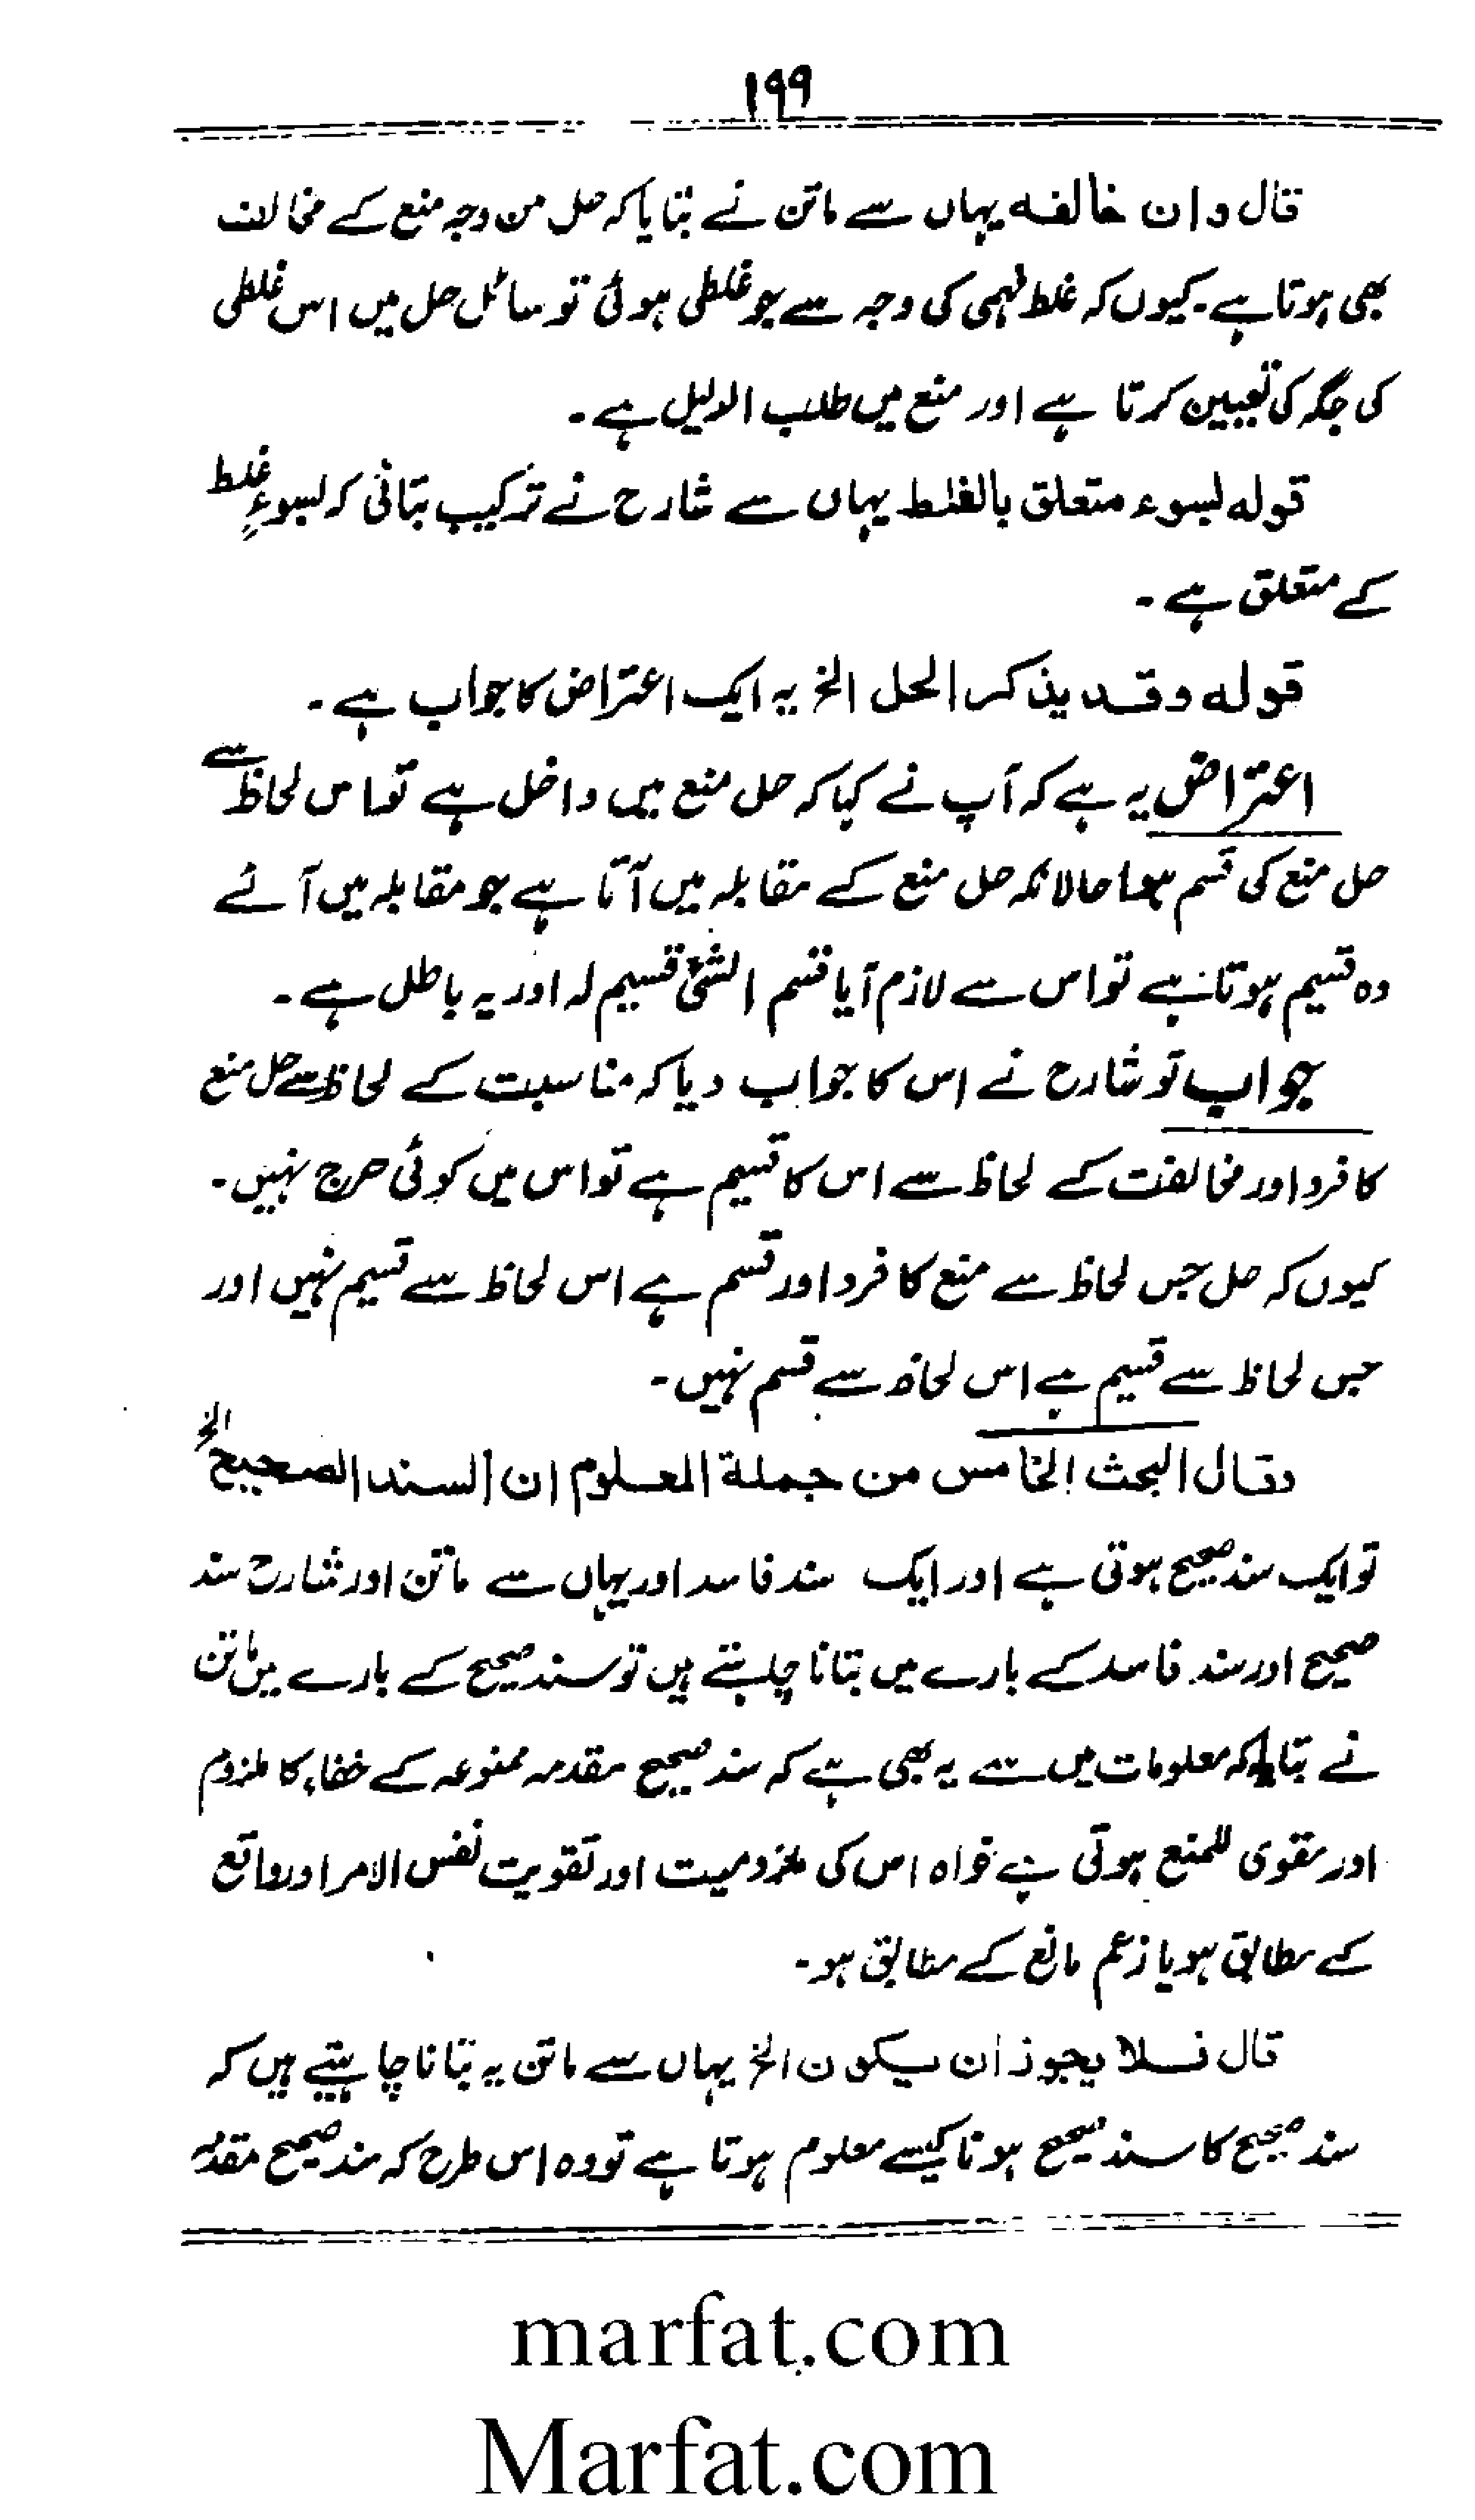 ۱۹۹
قال وان خالفه یہاں سے ماتن نے بتایا کہ حل من وجہ منع کے مخالف
بھی ہوتا ہے۔ کیوں کہ غلط فہمی کی وجہ سے جو غلطی ہوئی تو سائل حل میں اس غلطی
کی جگہ کی تعیین کرتا ہے اور منع میں طلب الدلیل ہے۔
قوله لسوء متعلق بالغلط یہاں سے شارح نے ترکیب بتائی کہ لسوءِ غلط
کے متعلق ہے۔
قوله وقد یذکر الحل الخ یہ ایک اعتراض کا جواب ہے۔
اعتراض یہ ہے کہ آپ نے کہا کہ حل منع میں داخل ہے تو اس لحاظ سے
حل منع کی قسم ہوا حالانکہ حل منع کے مقابلہ میں آتا ہے جو مقابلہ میں آئے
وہ قسیم ہوتا ہے تو اس سے لازم آیا قسم الشئ قسیم لہ اور یہ باطل ہے۔
جواب تو شارح نے اس کا جواب دیا کہ مناسبت کے لحاظ سے حل منع
کا فرد اور مخالفت کے لحاظ سے اس کا قسیم ہے تو اس میں کوئی حرج نہیں۔
کیوں کہ حل جس لحاظ سے منع کا فرد اور قسم ہے اس لحاظ سے قسیم نہیں اور
جس لحاظ سے قسیم ہے اس لحاظ سے قسم نہیں۔
وقال البحث الخامس من جملة المعلوم ان السند الصحیح الخ
تو ایک سند صحیح ہوتی ہے اور ایک سند فاسد اور یہاں سے ماتن اور شارح سند
صحیح اور سند فاسد کے بارے میں بتانا چاہتے ہیں تو سند صحیح کے بارے میں ماتن
نے بتایا کہ معلومات میں سے یہ بھی ہے کہ سند صحیح مقدمہ ممنوعہ کے خفاء کا ملزوم
اور مقوی للمنع ہوتی ہے خواہ اس کی ملزومیت اور تقویت نفس الامر اور واقع
کے مطابق ہو یا زعم مانع کے مطابق ہو۔
قال فلا یجوز ان یکون الخ یہاں سے ماتن یہ بتانا چاہتے ہیں کہ
سند صحیح کا سند صحیح ہونا کیسے معلوم ہوتا ہے تو وہ اس طرح کہ سند صحیح مقدمہ
marfat.com
Marfat.com